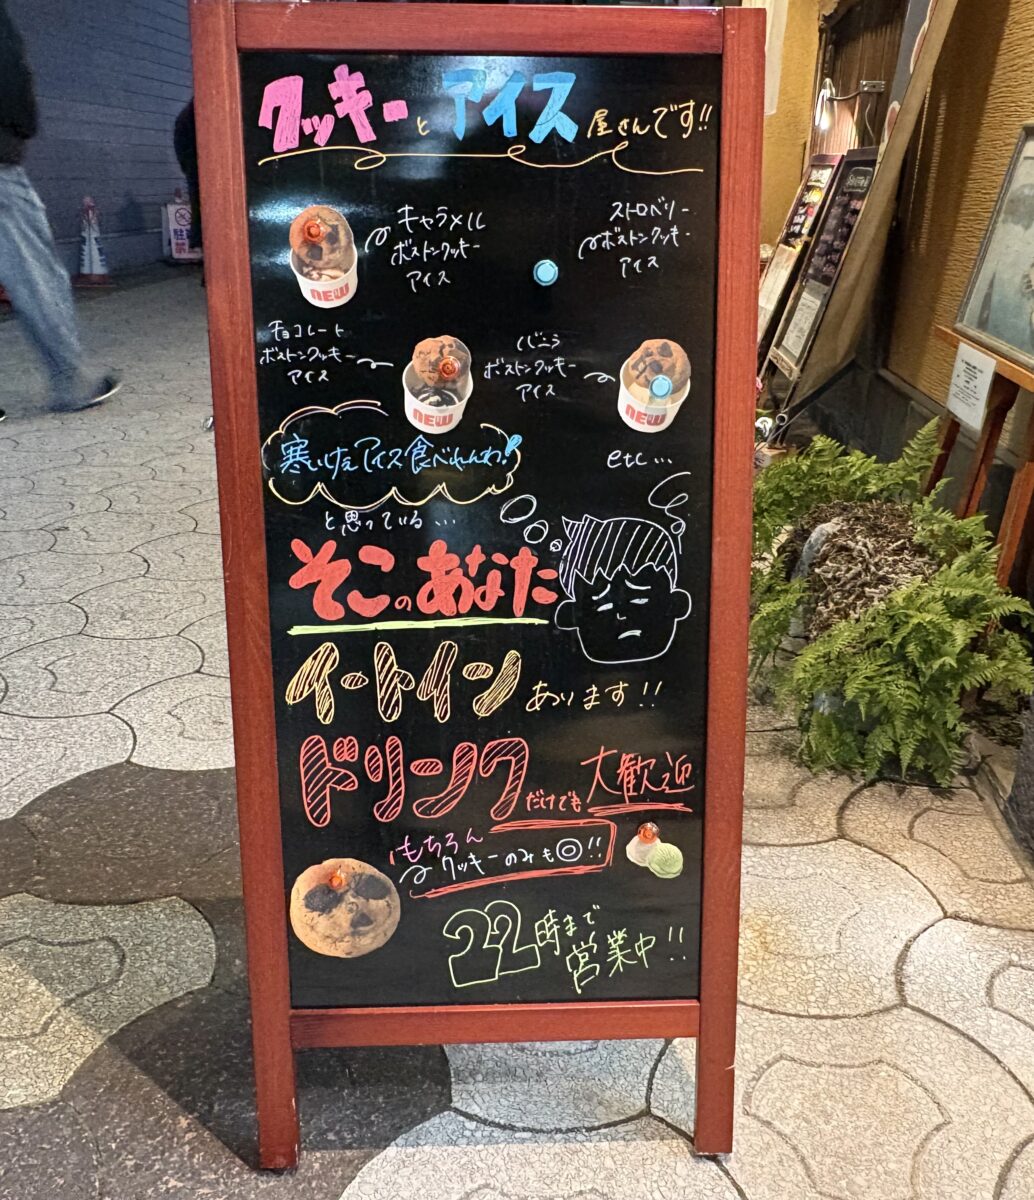 クッキーとアイス屋さんです!!
キャラメル
ボストンクッキー
アイス
ストロベリー
ボストンクッキー
アイス
NEW
チョコレート
ボストンクッキー
アイス
NEW
バニラ
ボストンクッキー
アイス
NEW
etc...
寒いけぇアイス食べれんわ!
と思っている...
そこのあなた
イートインあります!!
ドリンクだけでも大歓迎
もちろん
クッキーのみも◎!!
22時まで
営業中!!